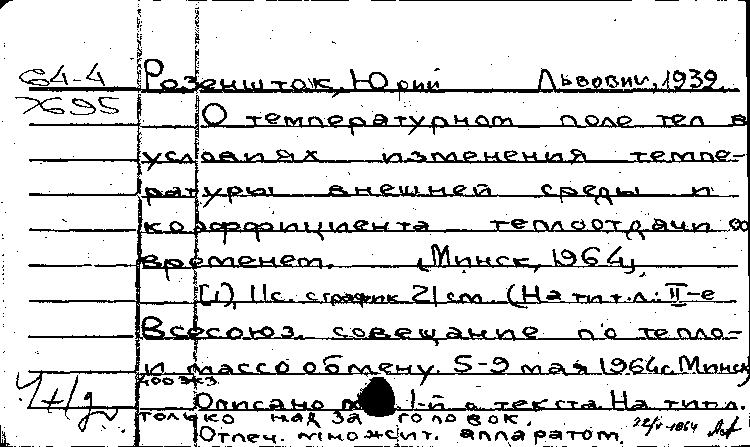 64-4 Розеншток, Юрий Львович, 1939
7695
О температурном поле тел в
условиях изменения темпе-
ратуры внешней среды и
коэффициента теплоотдачи со
временем. [Минск, 1964],
[1], 11с. с график 21 см. (На тит. л.: II-е
Всесоюз. совещание по тепло-
и массообмену. 5-9 мая 1964г. Минск
400 экз
Описано 1-й с текста. На тит. л.
только надзаголовок.
Отпеч. множит. аппаратом.